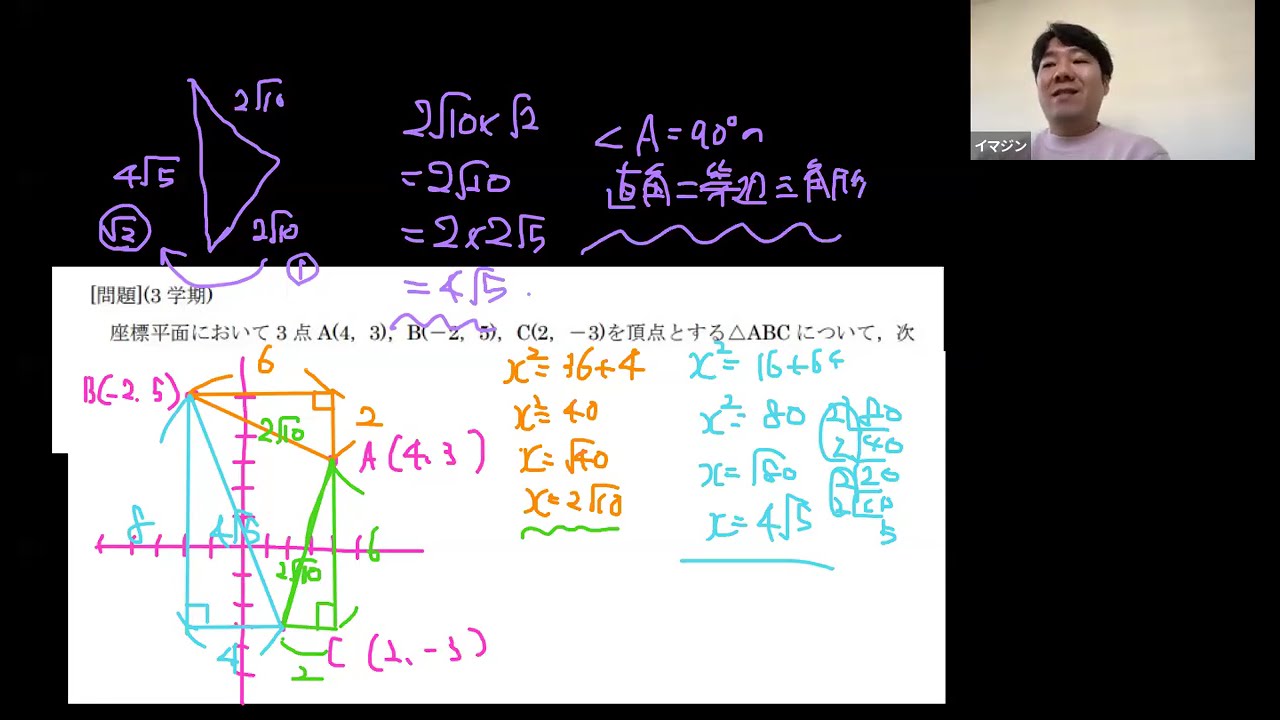 2√10
4√5
√2
2√10
1
2√10×√2
=2√20
=2×2√5
=4√5
<A=90°の
直角二等辺三角形
イマジン
[問題](3 学期)
座標平面において 3 点 A(4, 3), B(−2, 5), C(2, −3)を頂点とする△ABC について, 次
B(-2.5)
6
2
2√10
A(4.3)
8
4√5
6
2√10
4
2
C(2.-3)
x²=36+4
x²=40
x=√40
x=2√10
x²=16+64
x²=80
x=√80
x=4√5
2)80
2)40
2)20
2)10
5